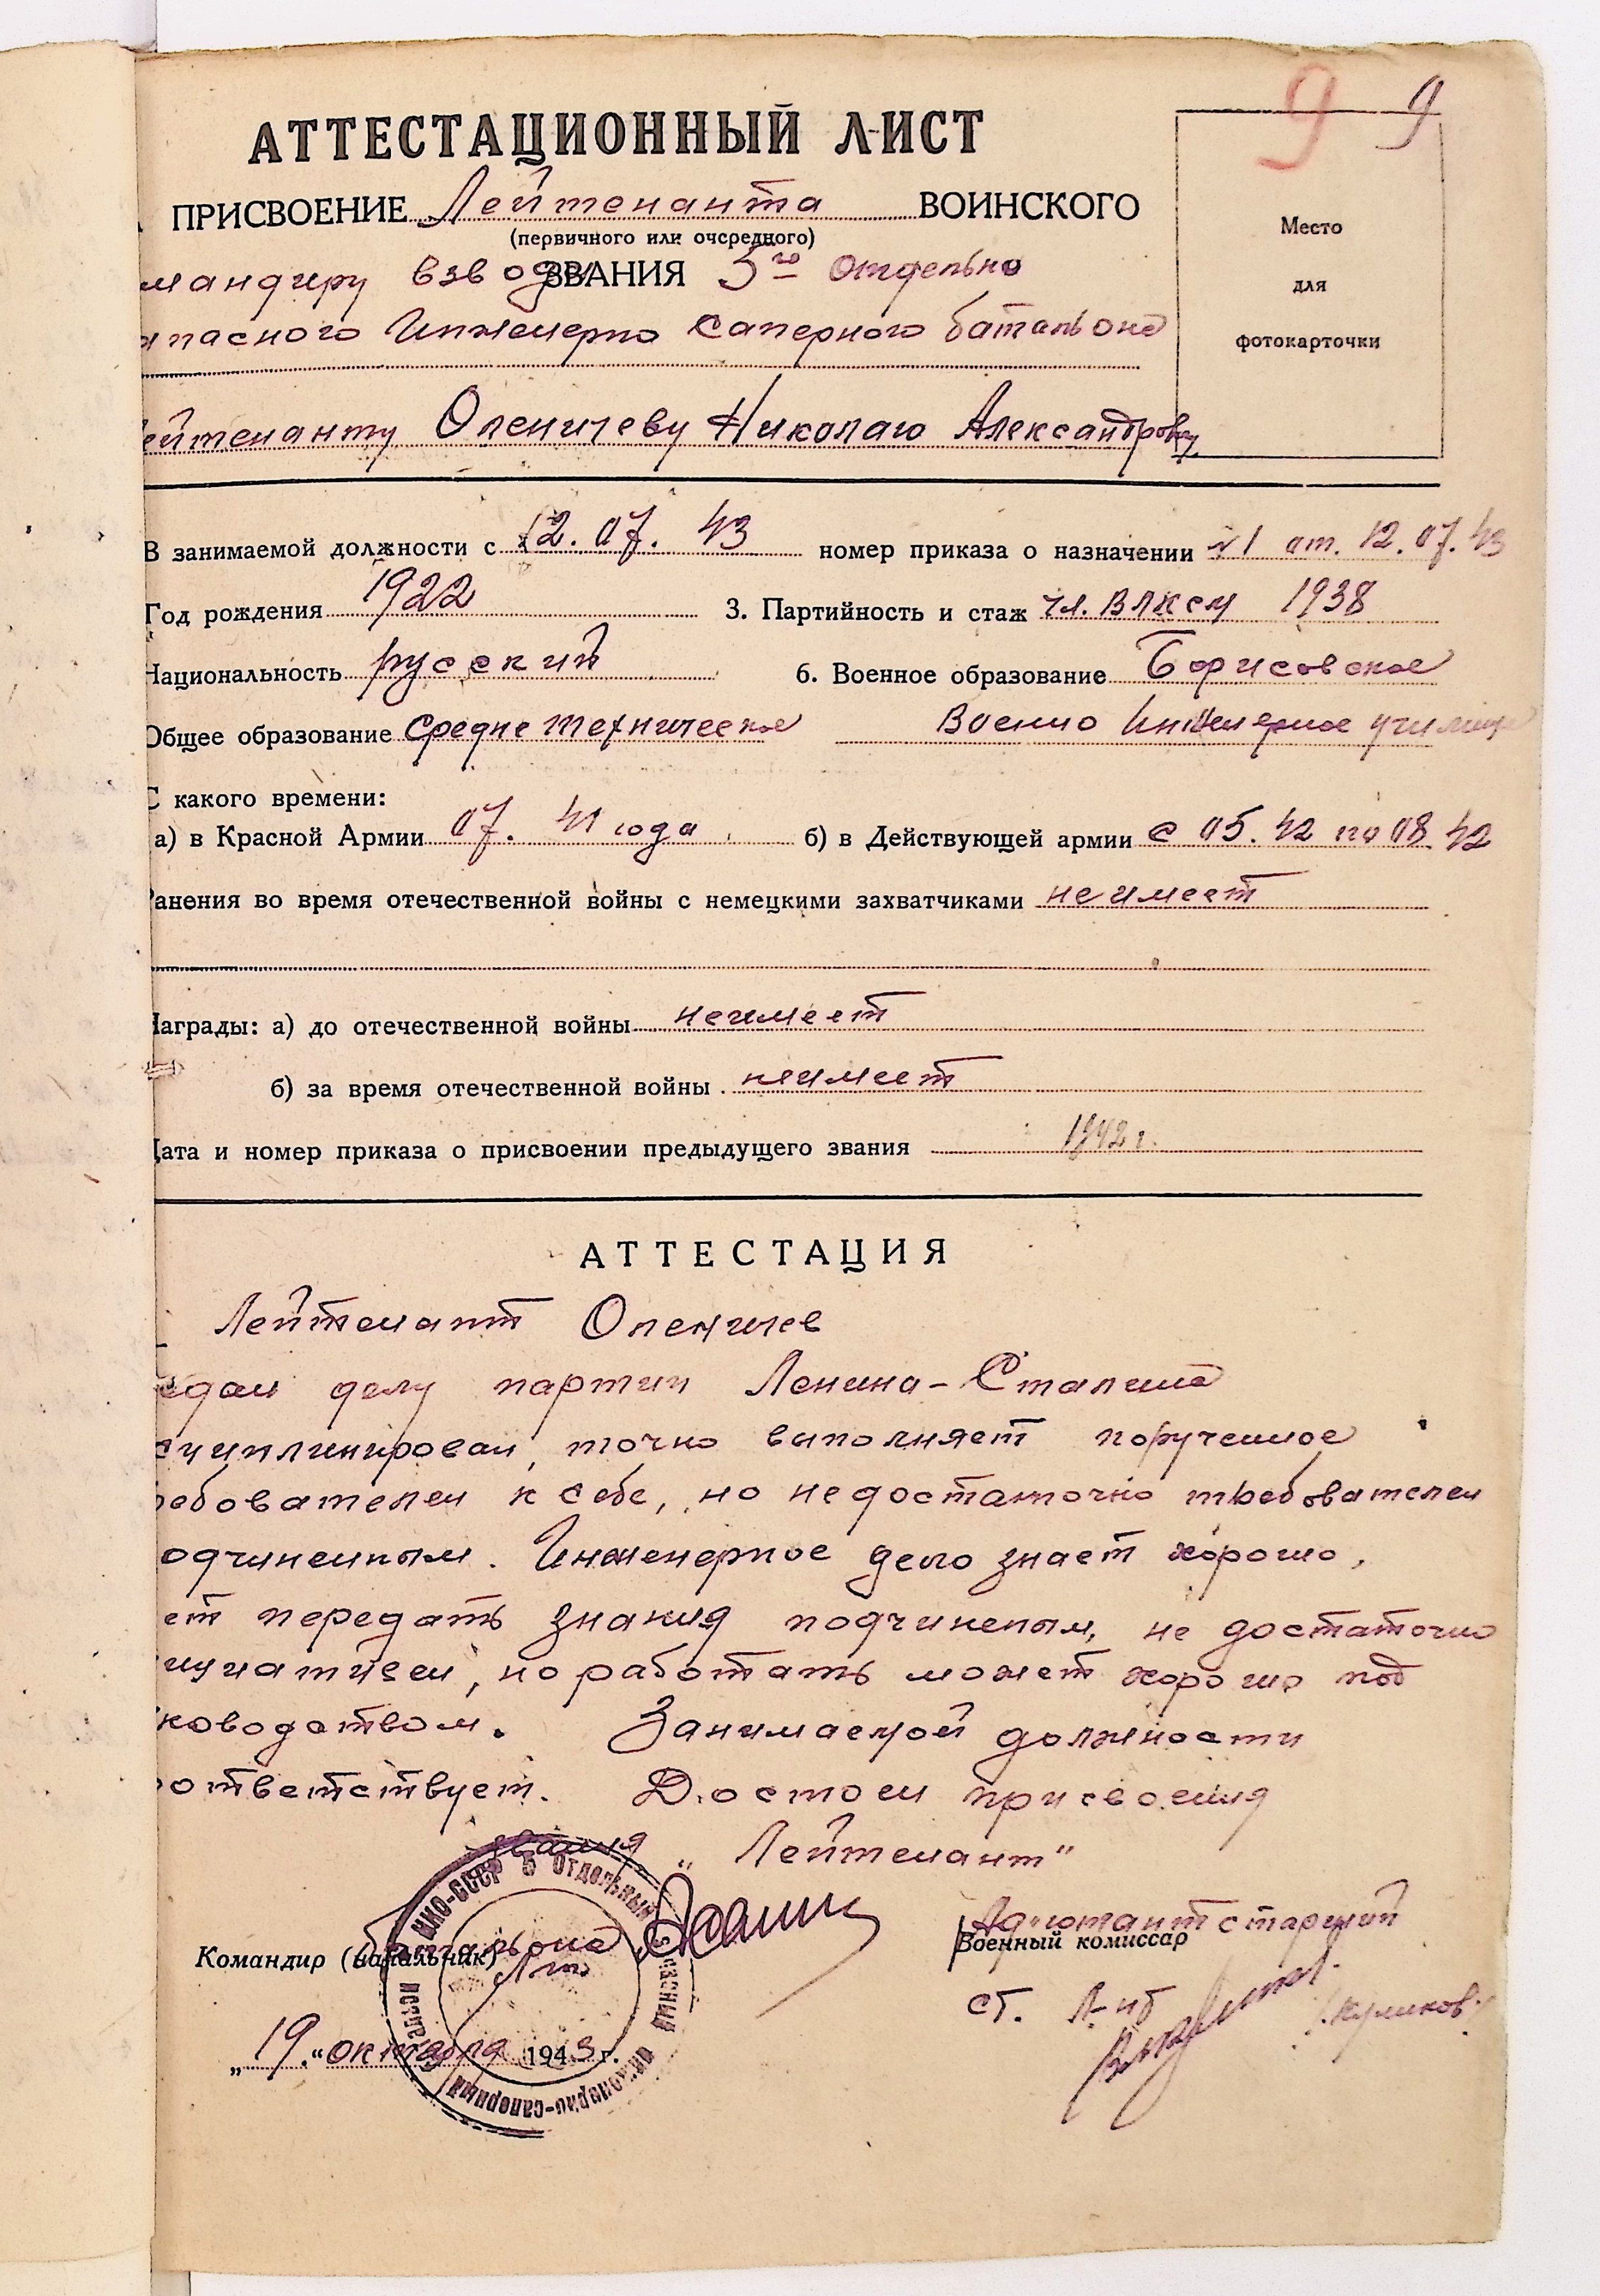 9 9
АТТЕСТАЦИОННЫЙ ЛИСТ
ПРИСВОЕНИЕ Лейтенанта ВОИНСКОГО
(первичного или очередного)
мандиру взвода ЗВАНИЯ 5го отдельно
апасного Инженерно саперного батальона
Место
для
фотокарточки
ейтенанту Оленичеву Николаю Александрович
В занимаемой должности с 12.07. 43 номер приказа о назначении №1 от. 12.07.43
Год рождения 1922 3. Партийность и стаж чл. ВЛКСМ 1938
Национальность русский 6. Военное образование Борисовское
Общее образование средне техническое Военно Инженерное училище
С какого времени:
а) в Красной Армии 07. 41 года б) в Действующей армии с 05. 42 по 08. 42
Ранения во время отечественной войны с немецкими захватчиками не имеет
Награды: а) до отечественной войны не имеет
б) за время отечественной войны не имеет
Дата и номер приказа о присвоении предыдущего звания 1942 г.
АТТЕСТАЦИЯ
Лейтенант Оленичев
едан делу партии Ленина-Сталина
сциплинирован, точно выполняет порученное
ребователен к себе, но недостаточно требователен
одчиненным. Инженерное дело знает хорошо,
ет передать знания подчиненым, не достаточно
ициативен, но работать может хорошо под
ководством. Занимаемой должности
оответствует. Достоен присвоения
звания „Лейтенант"
Командир (начальник) батальона
Адъютант старший
Военный комиссар
ст. Л-нт /Куликов/
НКО-СССР 5 Отдельный запасный инженерно-саперный
„19" октября 1943 г.